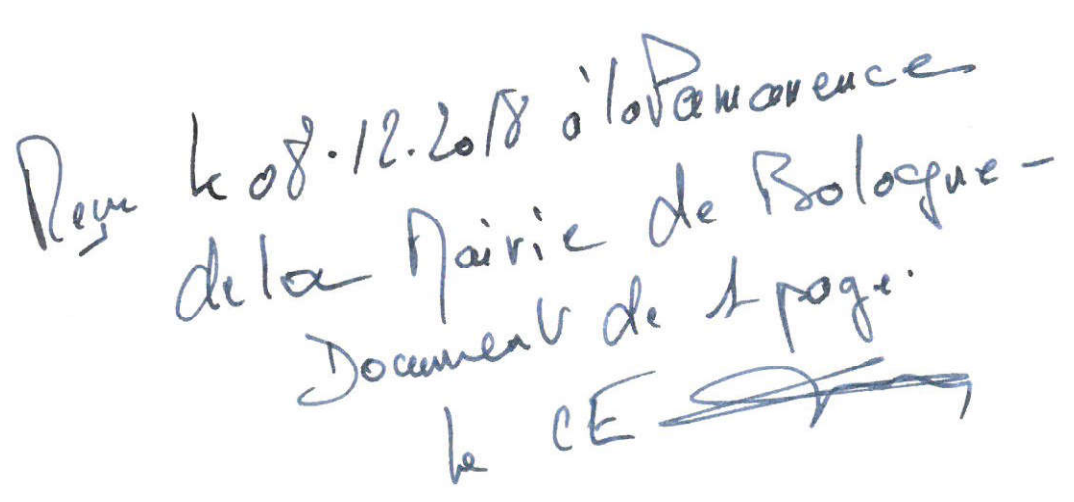 Reçu le 08.12.2018 à la Permanence
de la Mairie de Bologne -
Document de 1 page.
le CE